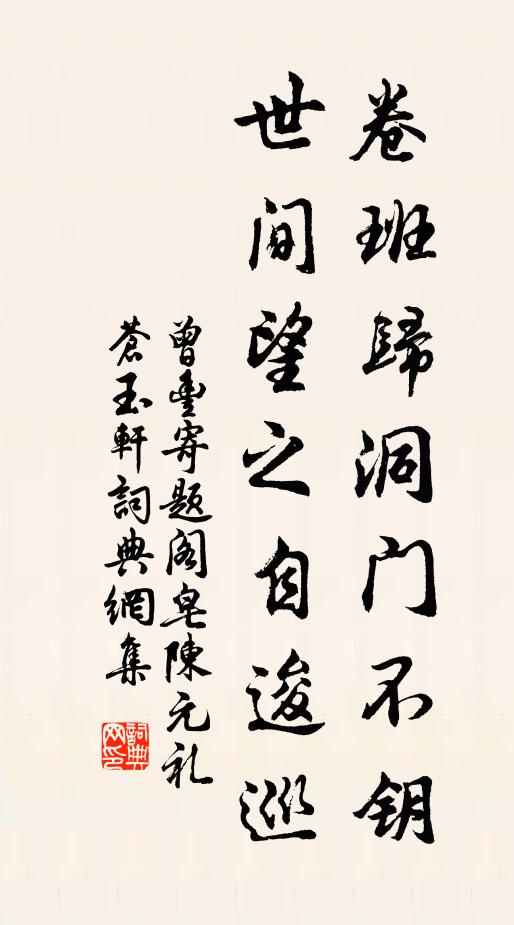 卷班歸洞门不钥
世间望之自逡巡
曾豐寄題阁皂陳元礼
蒼玉軒
詞典網集
詞典网印